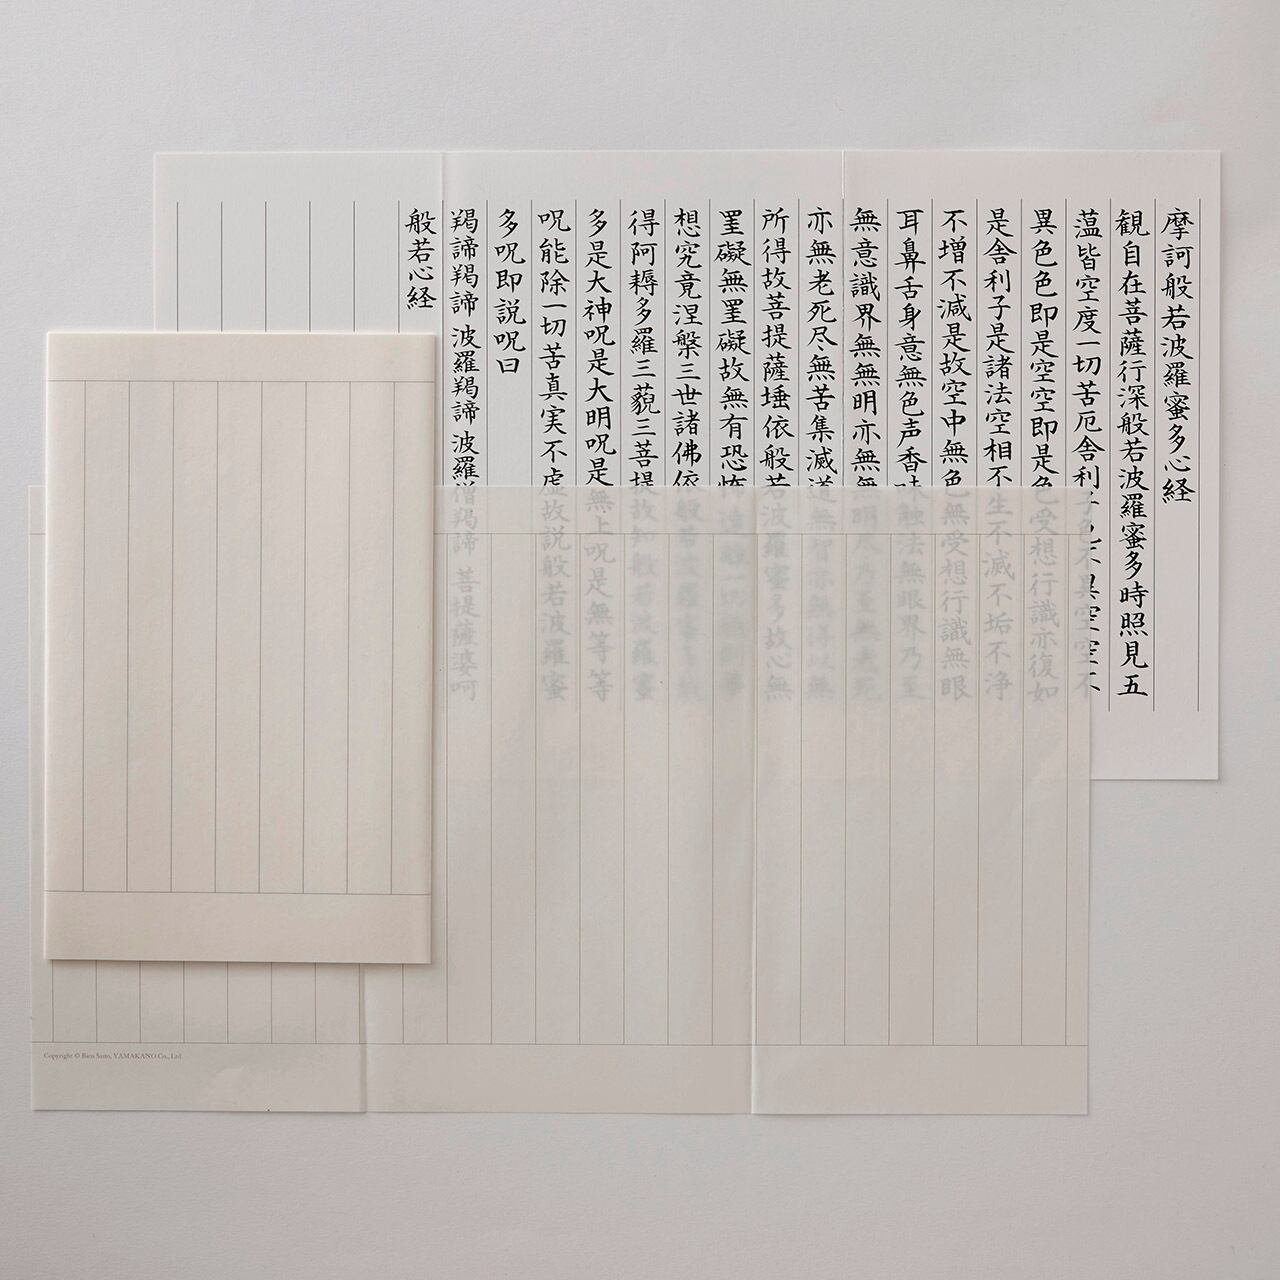 摩訶般若波羅蜜多心経
観自在菩薩行深般若波羅蜜多時照見五
薀皆空度一切苦厄舎利子色不異空空不
異色色即是空空即是色受想行識亦復如
是舎利子是諸法空相不生不滅不垢不浄
不増不減是故空中無色無受想行識無眼
耳鼻舌身意無色声香味触法無眼界乃至
無意識界無無明亦無無明尽乃至無老死
亦無老死尽無苦集滅道無智亦無得以無
所得故菩提薩埵依般若波羅蜜多故心無
罣礙無罣礙故無有恐怖遠離一切顛倒夢
想究竟涅槃三世諸佛依般若波羅蜜多故
得阿耨多羅三藐三菩提故知般若波羅蜜
多是大神呪是大明呪是無上呪是無等等
呪能除一切苦真実不虚故説般若波羅蜜
多呪即説呪曰
羯諦羯諦 波羅羯諦 波羅僧羯諦 菩提薩婆呵
般若心経
Copyright © Bien YAMAKANO Co., Ltd